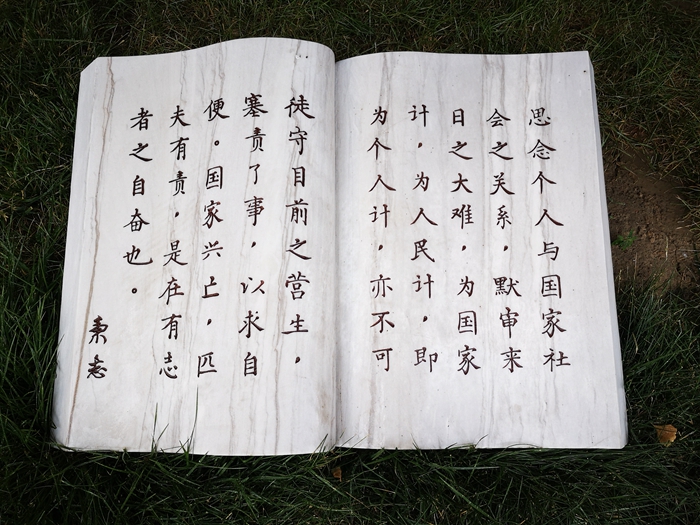 思念个人与国家社
会之关系，默审来
日之大难，为国家
计，为人民计，即
为个人计，亦不可
徒守目前之营生，
塞责了事，以求自
便。国家兴亡，匹
夫有责，是在有志
者之自奋也。
秉志